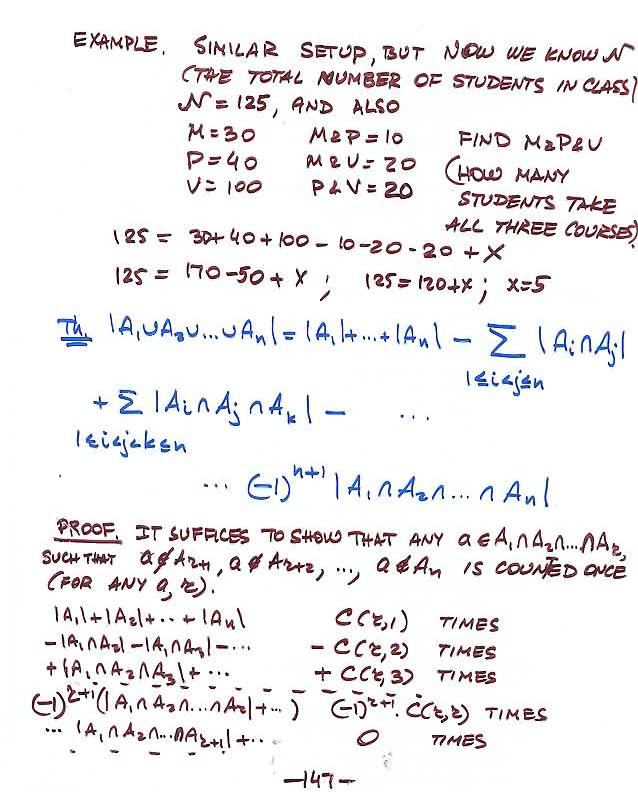 EXAMPLE. SIMILAR SETUP, BUT NOW WE KNOW N
(THE TOTAL NUMBER OF STUDENTS IN CLASS)
N = 125, AND ALSO
M = 30 M&P = 10 FIND M&P&V
P = 40 M&V = 20 (HOW MANY
V = 100 P&V = 20 STUDENTS TAKE
ALL THREE COURSES)
125 = 30+40+100-10-20-20+X
125 = 170-50+X ; 125=120+X ; X=5
Th. |A₁∪A₂∪...∪Aₙ| = |A₁|+...+|Aₙ| - Σ |Aᵢ∩Aⱼ|
1≤i<j≤n
+ Σ |Aᵢ∩Aⱼ∩Aₖ| - ...
1≤i<j<k≤n
... (-1)ⁿ⁺¹ |A₁∩A₂∩...∩Aₙ|
PROOF. IT SUFFICES TO SHOW THAT ANY a∈A₁∩A₂∩...∩Aᵣ,
SUCH THAT a∉Aᵣ₊₁, a∉Aᵣ₊₂, ..., a∉Aₙ IS COUNTED ONCE
(FOR ANY a, r).
|A₁|+|A₂|+...+|Aₙ| C(r,1) TIMES
-|A₁∩A₂|-|A₁∩A₃|-... - C(r,2) TIMES
+|A₁∩A₂∩A₃|+... + C(r,3) TIMES
(-1)ʳ⁺¹(|A₁∩A₂∩...∩Aᵣ|+...) (-1)ʳ⁺¹·C(r,r) TIMES
... |A₁∩A₂∩...∩Aᵣ₊₁|+... 0 TIMES
-147-